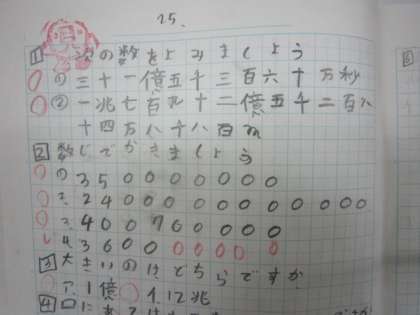 25.
1 次の数をよみましょう
① 三十一億五千三百六十万秒
② 一兆七百九十二億五千二百八
十四万八千八百m
2 数じでかきましょう
① 3500000000
2. 2400000000000
3. 400700000
4. 360000000
3 大きいのはどちらですか
ア. 1億 イ. 12兆
4 口に